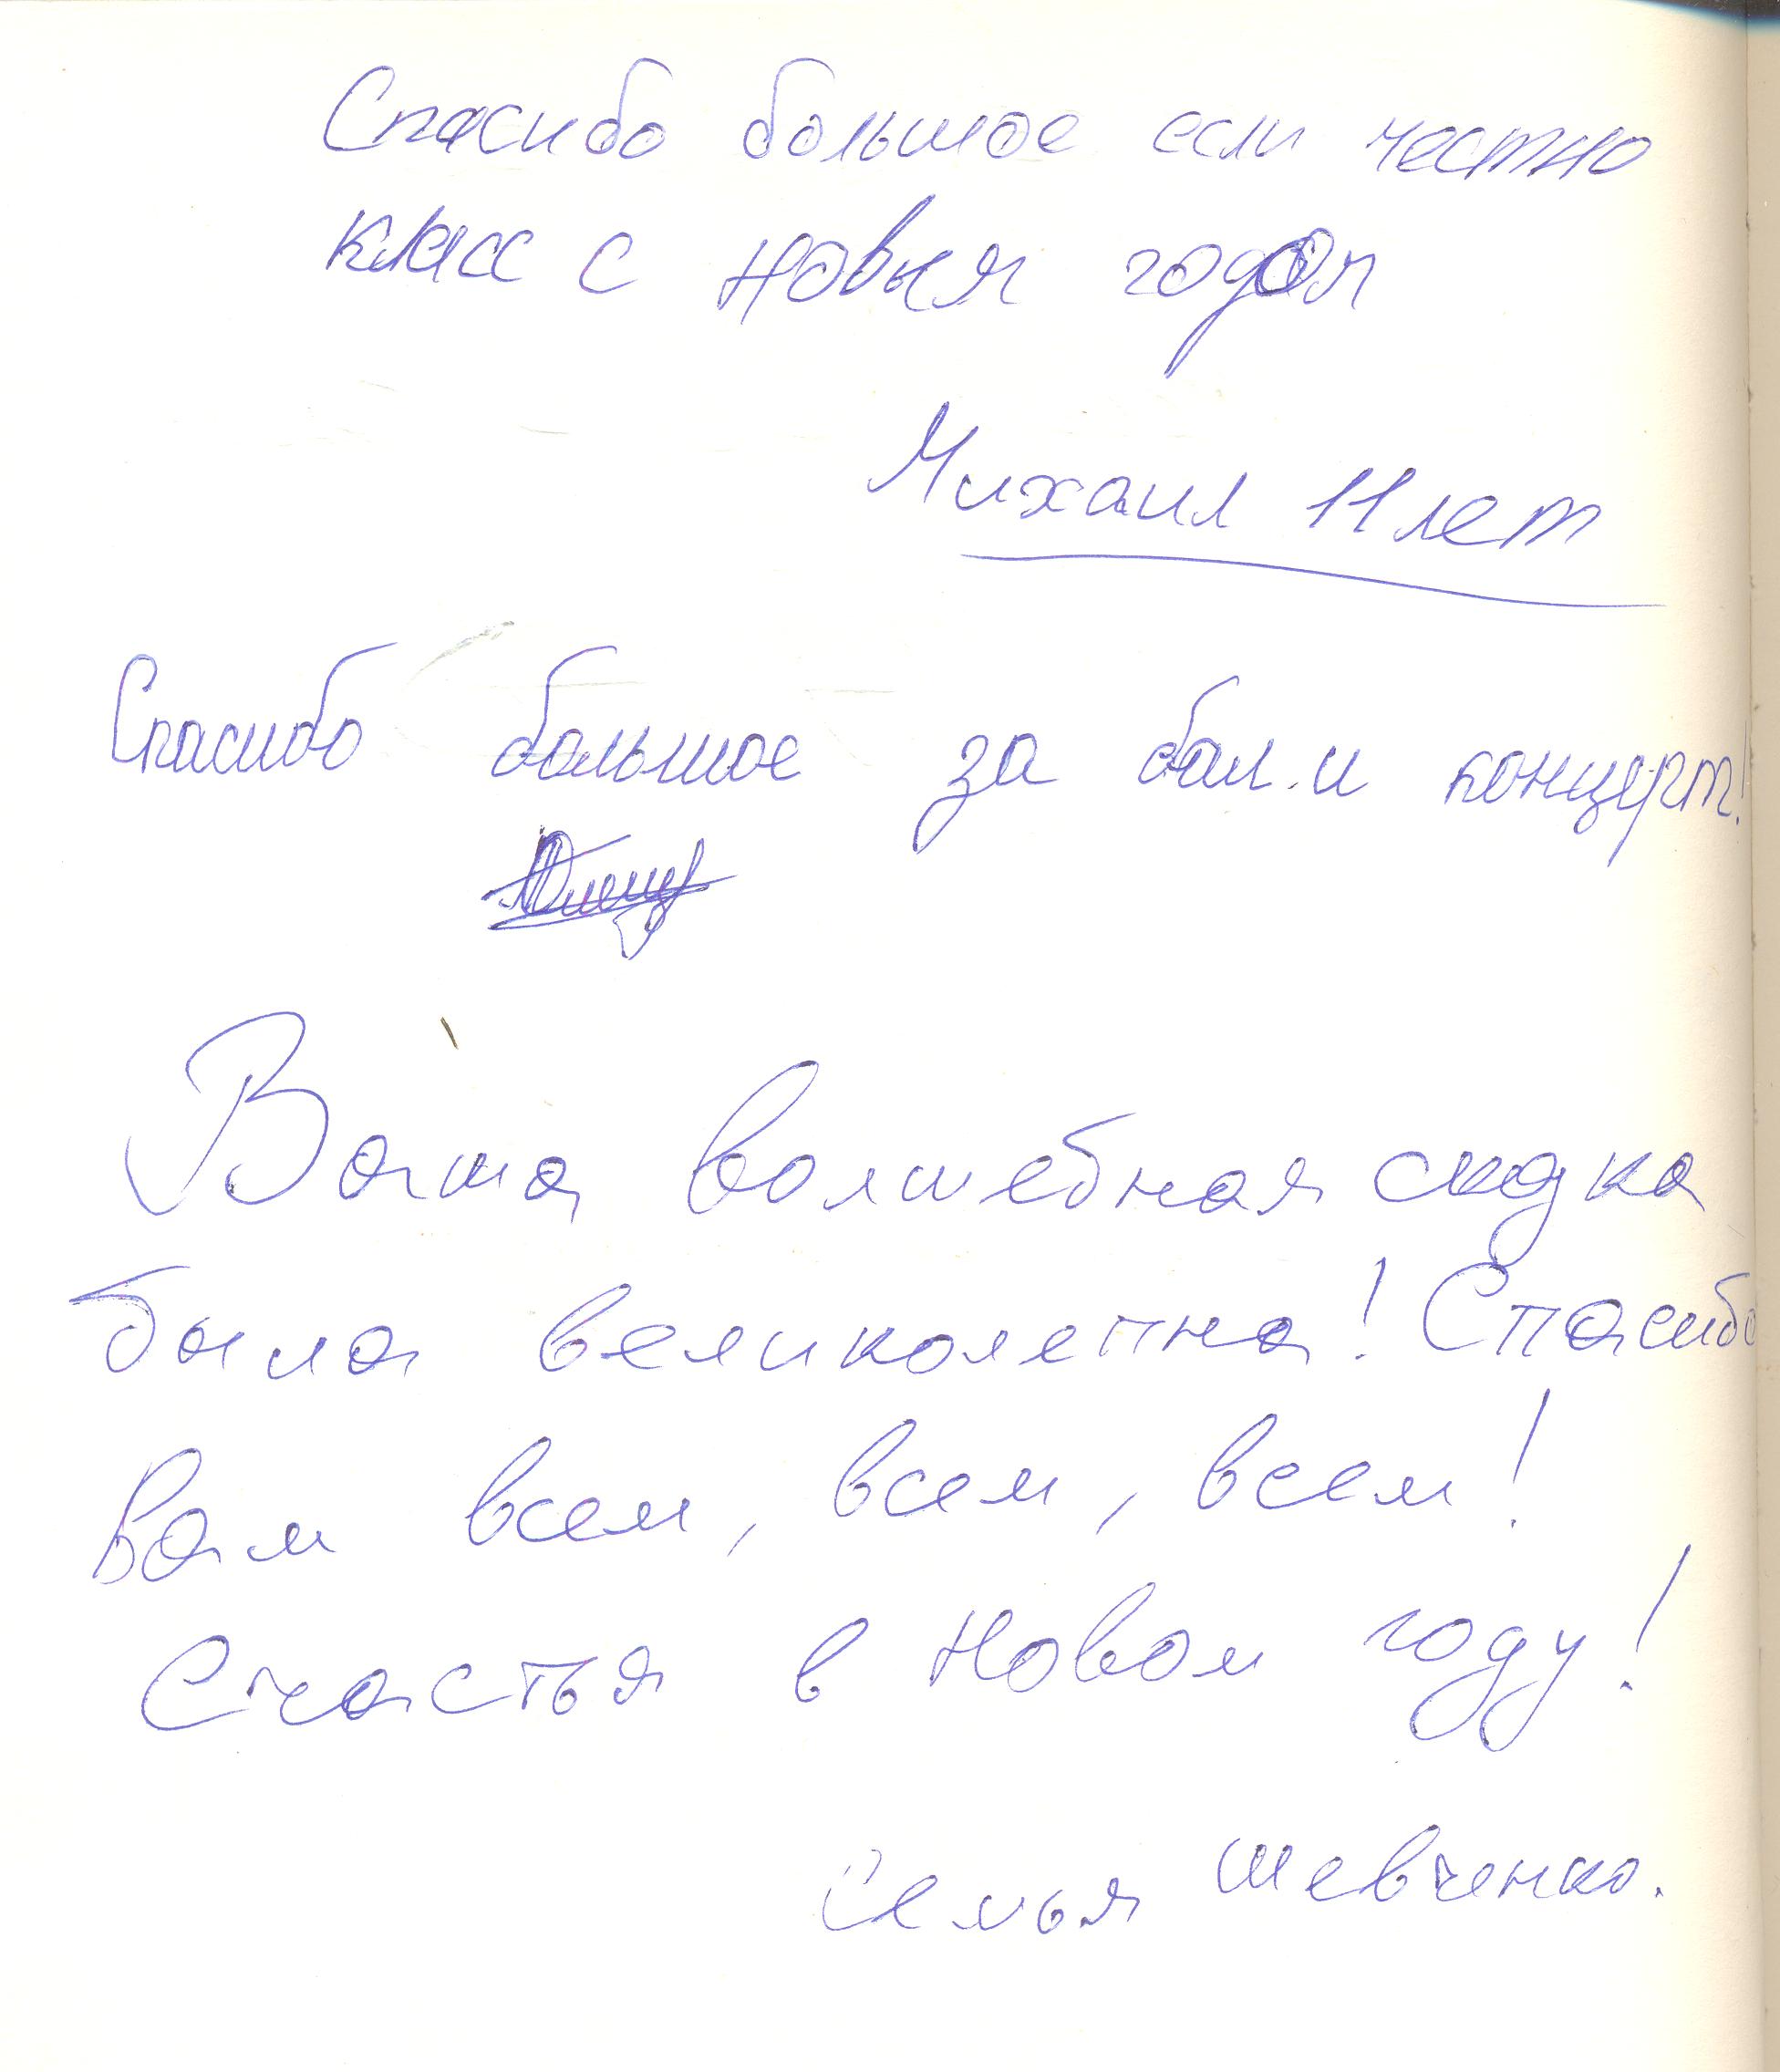 Спасибо большое если честно
класс с новым годом
Михаил 11 лет
Спасибо большое за бал и концерт!
Ваша волшебная сказка
была великолепна! Спасибо
Вам всем, всем, всем!
Счастья в Новом году!
Семья Шевченко.